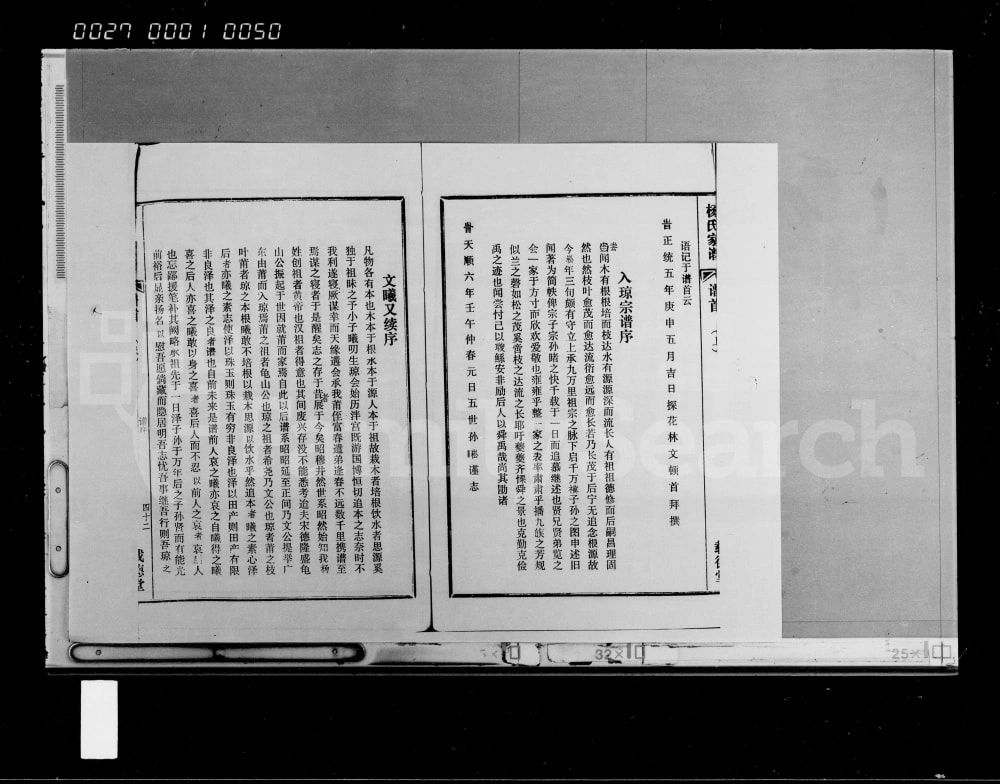 0027 0001 0050
杨氏家谱 谱首
语记于谱首云
旹正统五年庚申五月吉日探花林文顿首拜撰
入琼宗谱序
尝闻木有根根培而枝达水有源源深而流长人有祖祖德修而后嗣昌理固
然也然枝叶愈茂而愈达流衍愈远而愈长若乃长茂于后宁无追念根源故
今 年三旬颇有守立上承九万里祖宗之脉下启千万 子孙之图申述旧
闻著为简帙俾宗子宗孙睹之快千载于一日而追慕继述也贤兄贤弟览之
会一家于方寸而欣欢爱敬也雍雍乎整一家之表率肃肃乎播九族之芳规
似兰之磬如松之茂奚啻枝之达流之长耶吁夔夔齐慄舜之景也克勤克俭
禹之迹也闻尝忖己以 安非励后人以舜禹哉尚其勖诸
旹天顺六年壬午仲春元日五世孙 谨志
文曦又续序
凡物各有本也木本于根水本于源人本于祖故栽木者培根饮水者思源奚
独于祖昧之予小子曦叨生琼会始历泮宫既游国博恒切追本之志奈时不
我利遂寝厥谋幸而天缘遇会承我莆侄富春遣弟逢春不远数千里携谱至
焉谋之寝者于是醒矣志之存于昔展于今矣昭穆井然世系昭然始知我杨
姓创祖者黄帝也汉祖者得意也其间废兴存没不能悉考迨夫宋德隆盛龟
山公振起于世因就莆而家焉自此以后谱系昭昭延至正间乃文公提举广
东由莆而入琼焉莆之祖者龟山公也琼之祖者希尧乃文公也琼者莆之枝
叶莆者琼之本根曦敢不培根以栽木思源以饮水乎然追本者曦之素心泽
后者亦曦之素志使泽以珠玉则珠玉有穷非良泽也泽以田产则田产有限
非良泽也其泽之良者谱也自前未来是谱前人哀之曦亦哀之自曦得之曦
喜之后人亦喜之曦敢以身之喜者喜后人而不忍以前人之哀者哀后人
也忘鄙援笔补其阙略 祖先于一日泽子孙于万年后之子孙贤而有能光
前裕后显亲扬名以慰吾愿倘藏而隐居明吾志忧吾事继吾行则吾琼之
谱序
四十二
32×
25×